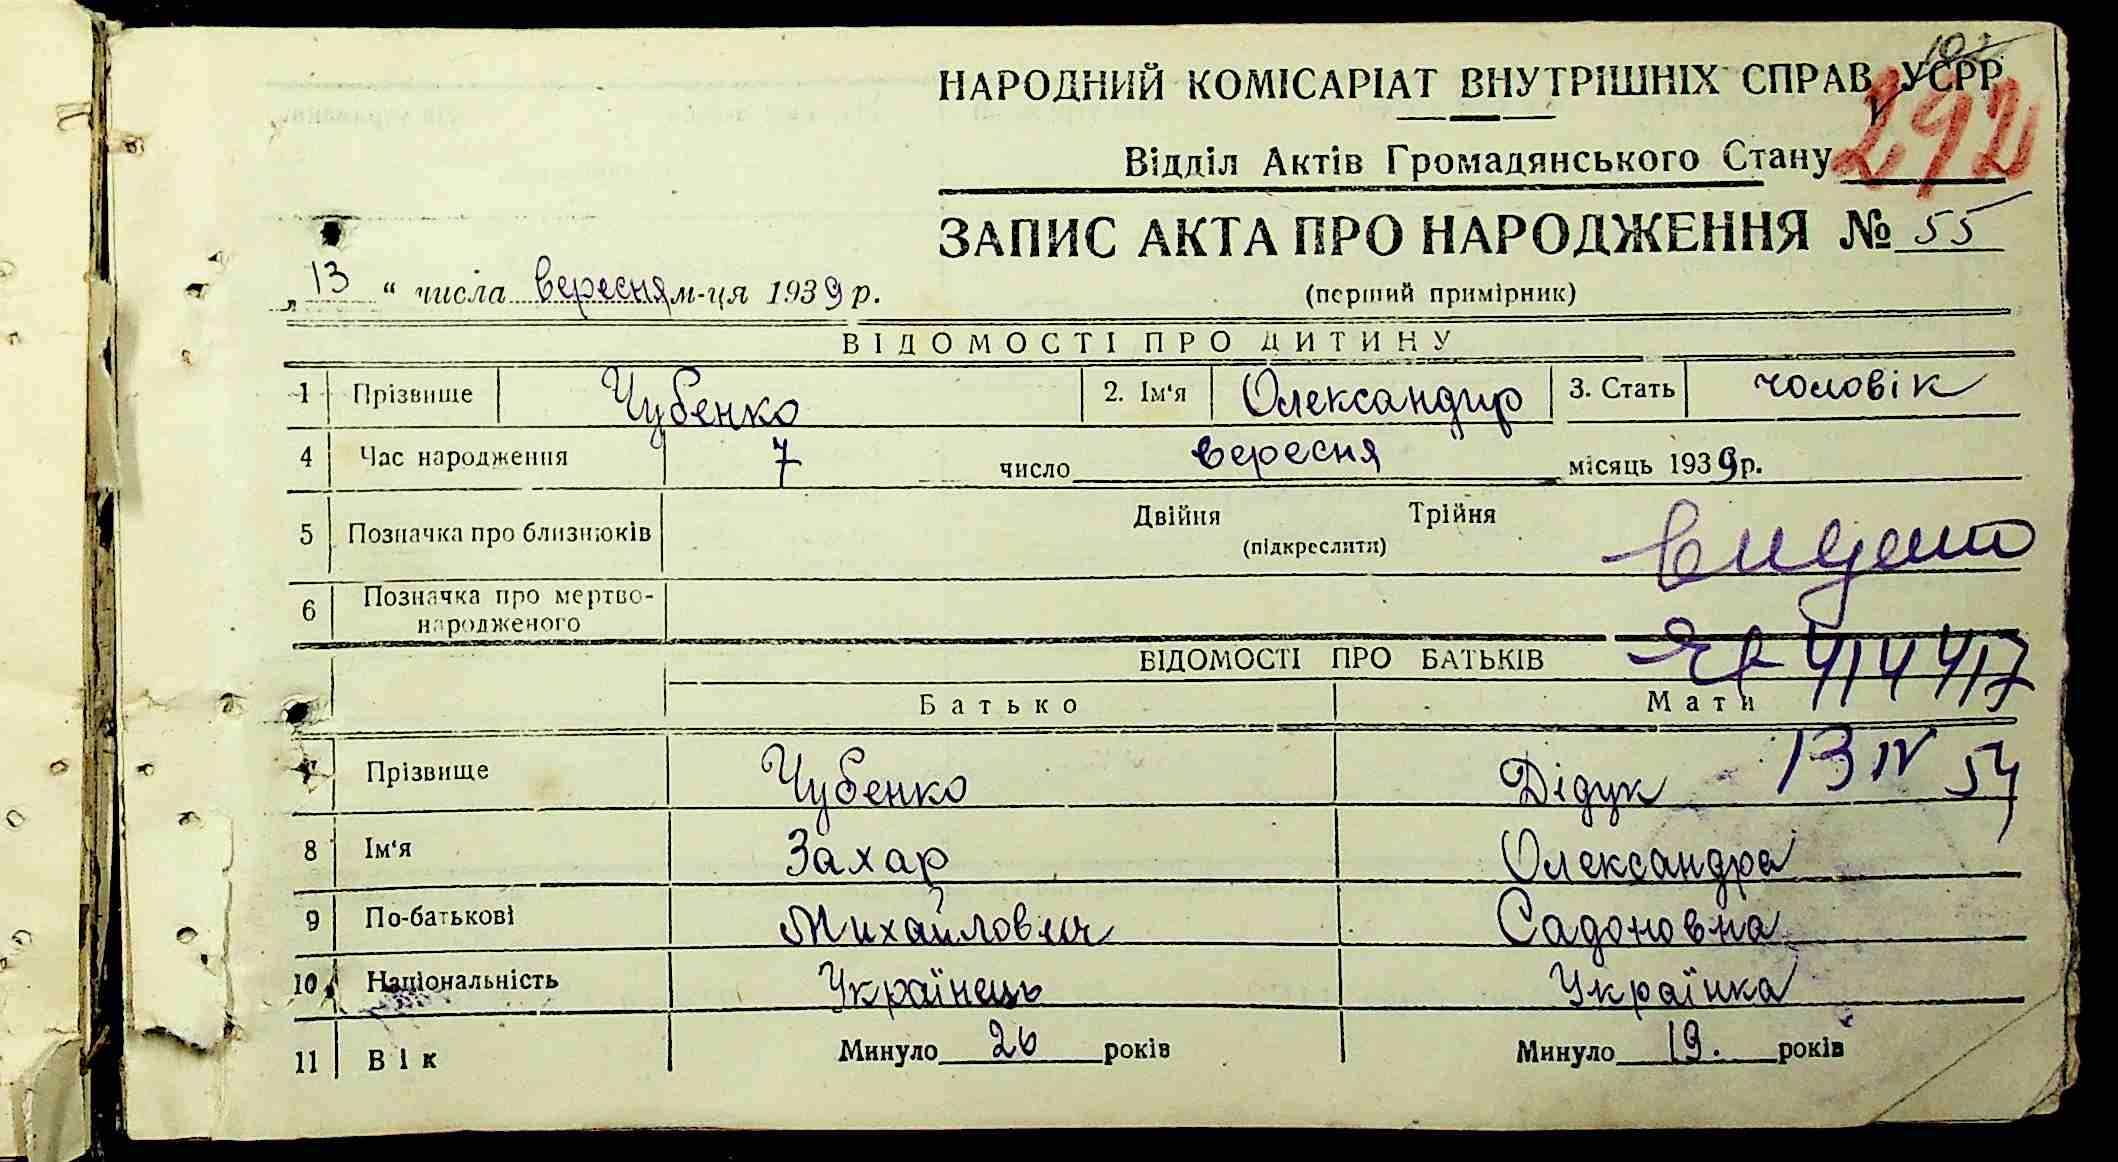 НАРОДНИЙ КОМІСАРІАТ ВНУТРІШНІХ СПРАВ УСРР
292
Відділ Актів Громадянського Стану
ЗАПИС АКТА ПРО НАРОДЖЕННЯ № 55
„ 13 “ числа вересня м-ця 1939 р.
(перший примірник)
ВІДОМОСТІ ПРО ДИТИНУ
1 Прізвище Чубенко 2. Ім'я Олександир 3. Стать чоловік
4 Час народження 7 число вересня місяць 1939 р.
5 Позначка про близнюків Двійня Трійня
(підкреслити)
6 Позначка про мертво-
народженого
ВІДОМОСТІ ПРО БАТЬКІВ
Батько Мати
13 IV 54
7 Прізвище Чубенко Дідук
8 Ім'я Захар Олександра
9 По-батькові Михайлович Садоновна
10 Національність Українець Українка
11 Вік Минуло 26 років Минуло 19. років